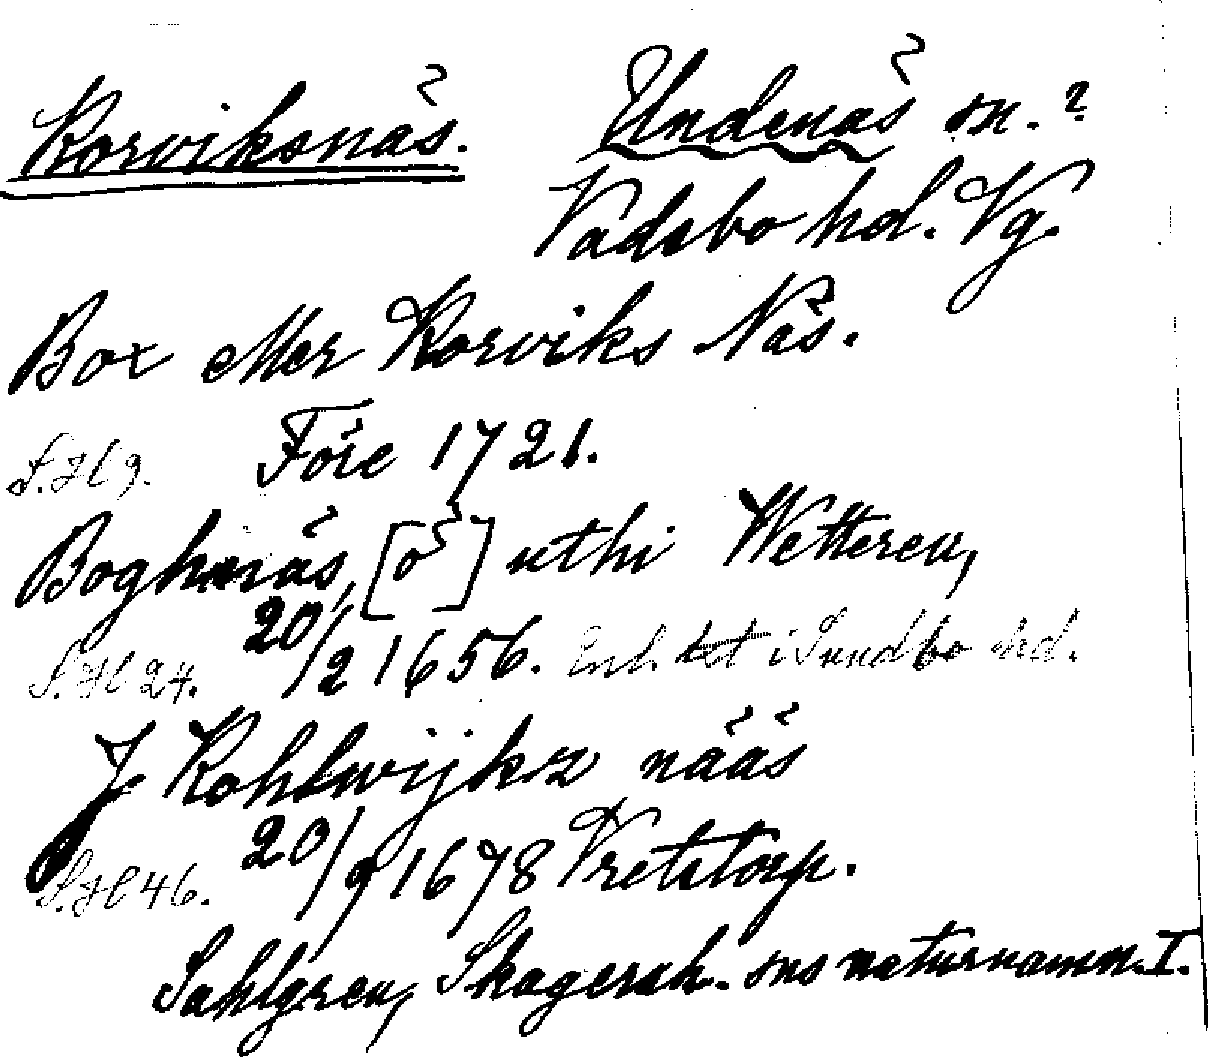 Korviksnäs. Undenäs sn.?
Vadsbo hd. Vg.
Box eller Korviks Näs.
S.H 9. Före 1721.
Boghnäs, [ö] uthi Wetteren,
S.H 24. 20/2 1656. Enl. tet i Sundbo hd.
J Kohlwijkz nääs
S.H 46. 20/9 1678 Vretstorp.
Sahlgren, Skagersh. sns naturnamn. I.